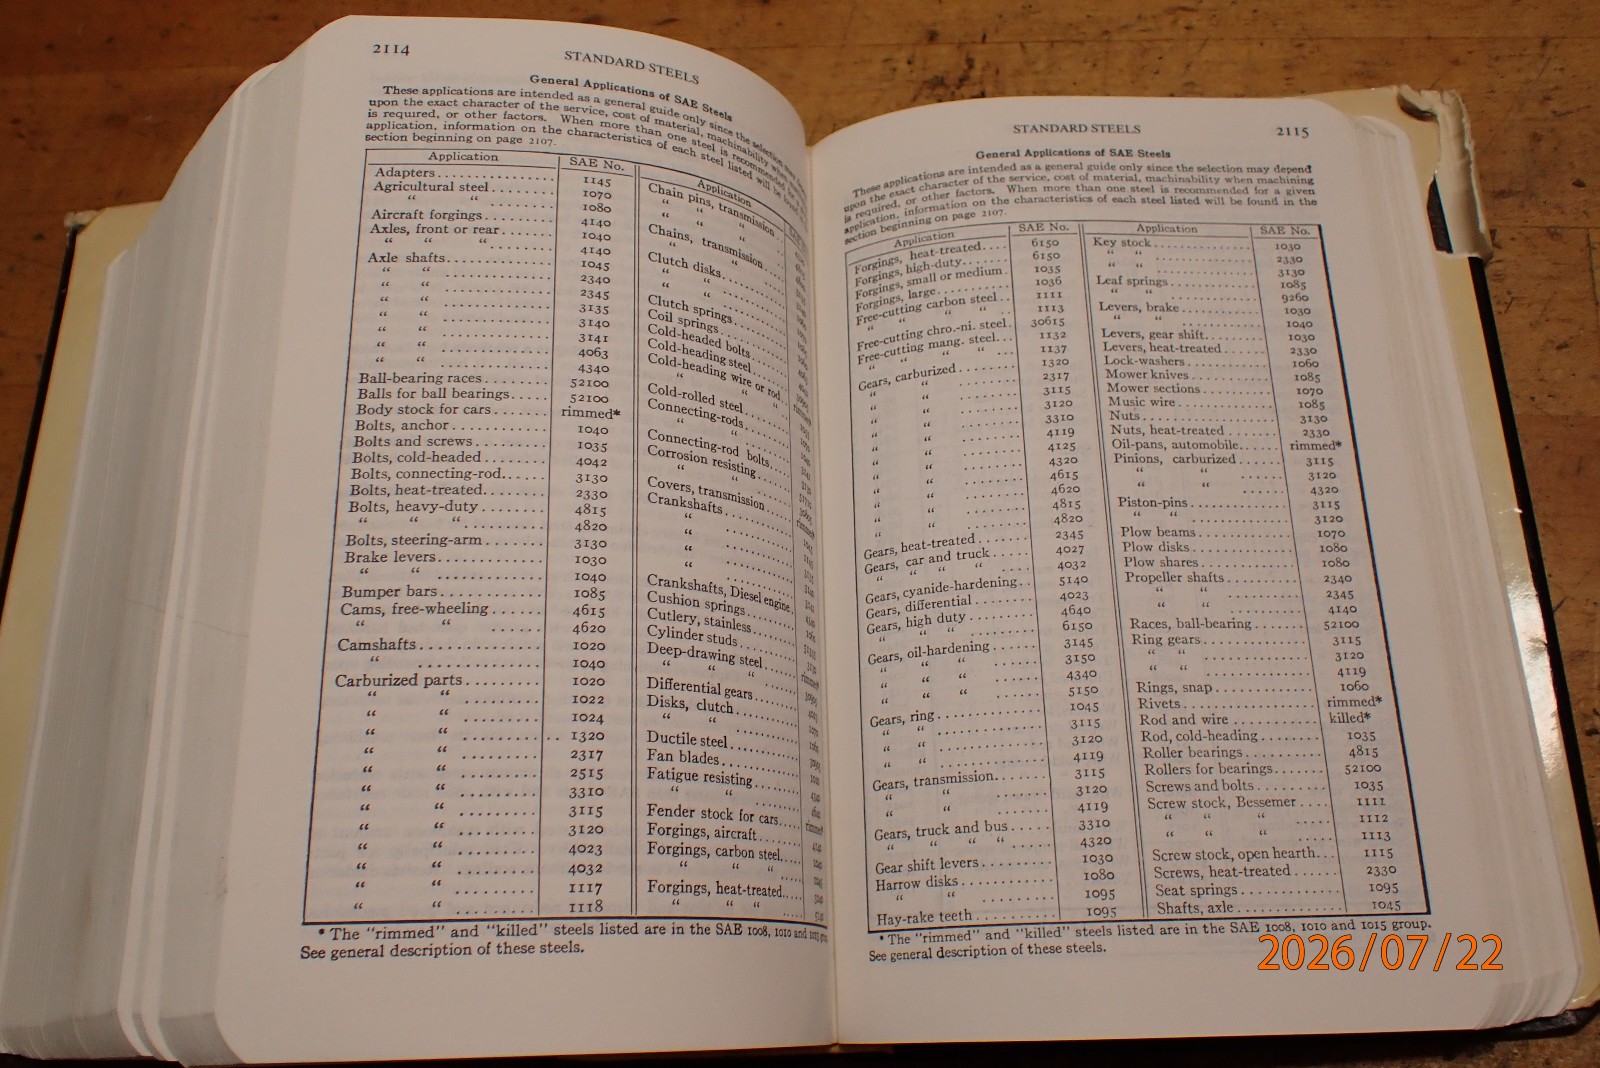 2114
STANDARD STEELS
General Applications of SAE Steels
These applications are intended as a general guide only since the selection may
upon the exact character of the service, cost of material, machinability when
is required, or other factors. When more than one steel is recommended for a
application, information on the characteristics of each steel listed will be found
section beginning on page 2107.
Application SAE No.
Adapters 1145
Agricultural steel 1070
“ “ 1080
Aircraft forgings 4140
Axles, front or rear 1040
“ “ “ 4140
Axle shafts 1045
“ “ 2340
“ “ 2345
“ “ 3135
“ “ 3140
“ “ 3141
“ “ 4063
“ “ 4340
Ball-bearing races 52100
Balls for ball bearings 52100
Body stock for cars rimmed*
Bolts, anchor 1040
Bolts and screws 1035
Bolts, cold-headed 4042
Bolts, connecting-rod 3130
Bolts, heat-treated 2330
Bolts, heavy-duty 4815
“ “ “ 4820
Bolts, steering-arm 3130
Brake levers 1030
“ “ 1040
Bumper bars 1085
Cams, free-wheeling 4615
“ “ 4620
Camshafts 1020
“ 1040
Carburized parts 1020
“ “ 1022
“ “ 1024
“ “ 1320
“ “ 2317
“ “ 2515
“ “ 3310
“ “ 3115
“ “ 3120
“ “ 4023
“ “ 4032
“ “ 1117
“ “ 1118
Application
Chain pins, transmission
“ “ “
“ “ “
Chains, transmission
“ “
Clutch disks
“ “
“ “
Clutch springs
Coil springs
Cold-headed bolts
Cold-heading steel
Cold-heading wire or rod
“ “ “
Cold-rolled steel
Connecting-rods
“ “
Connecting-rod bolts
Corrosion resisting
“ “
Covers, transmission
Crankshafts
“
“
“
“
Crankshafts, Diesel engine
Cushion springs
Cutlery, stainless
Cylinder studs
Deep-drawing steel
“ “ “
Differential gears
Disks, clutch
“ “
Ductile steel
Fan blades
Fatigue resisting
“ “
Fender stock for cars
Forgings, aircraft
Forgings, carbon steel
“ “ “
Forgings, heat-treated
“ “ “
* The “rimmed” and “killed” steels listed are in the SAE 1008, 1010 and 1015
See general description of these steels.
STANDARD STEELS
2115
General Applications of SAE Steels
These applications are intended as a general guide only since the selection may depend
upon the exact character of the service, cost of material, machinability when machining
is required, or other factors. When more than one steel is recommended for a given
application, information on the characteristics of each steel listed will be found in the
section beginning on page 2107.
Application SAE No.
Forgings, heat-treated 6150
Forgings, high-duty 6150
Forgings, small or medium 1035
Forgings, large 1036
Free-cutting carbon steel 1111
“ “ “ “ 1113
Free-cutting chro.-ni. steel 30615
Free-cutting mang. steel 1132
“ “ “ “ 1137
Gears, carburized 1320
“ “ 2317
“ “ 3115
“ “ 3120
“ “ 3310
“ “ 4119
“ “ 4125
“ “ 4320
“ “ 4615
“ “ 4620
“ “ 4815
“ “ 4820
Gears, heat-treated 2345
Gears, car and truck 4027
“ “ “ “ 4032
Gears, cyanide-hardening 5140
Gears, differential 4023
Gears, high duty 4640
“ “ “ 6150
Gears, oil-hardening 3145
“ “ “ 3150
“ “ “ 4340
“ “ “ 5150
Gears, ring 1045
“ “ 3115
“ “ 3120
“ “ 4119
Gears, transmission 3115
“ “ 3120
“ “ 4119
Gears, truck and bus 3310
“ “ “ “ 4320
Gear shift levers 1030
Harrow disks 1080
“ “ 1095
Hay-rake teeth 1095
Application SAE No.
Key stock 1030
“ “ 2330
“ “ 3130
Leaf springs 1085
“ “ 9260
Levers, brake 1030
“ “ 1040
Levers, gear shift 1030
Levers, heat-treated 2330
Lock-washers 1060
Mower knives 1085
Mower sections 1070
Music wire 1085
Nuts 3130
Nuts, heat-treated 2330
Oil-pans, automobile rimmed*
Pinions, carburized 3115
“ “ 3120
“ “ 4320
Piston-pins 3115
“ “ 3120
Plow beams 1070
Plow disks 1080
Plow shares 1080
Propeller shafts 2340
“ “ 2345
“ “ 4140
Races, ball-bearing 52100
Ring gears 3115
“ “ 3120
“ “ 4119
Rings, snap 1060
Rivets rimmed*
Rod and wire killed*
Rod, cold-heading 1035
Roller bearings 4815
Rollers for bearings 52100
Screws and bolts 1035
Screw stock, Bessemer 1111
“ “ “ 1112
“ “ “ 1113
Screw stock, open hearth 1115
Screws, heat-treated 2330
Seat springs 1095
Shafts, axle 1045
* The “rimmed” and “killed” steels listed are in the SAE 1008, 1010 and 1015 group.
See general description of these steels.
2026/07/22